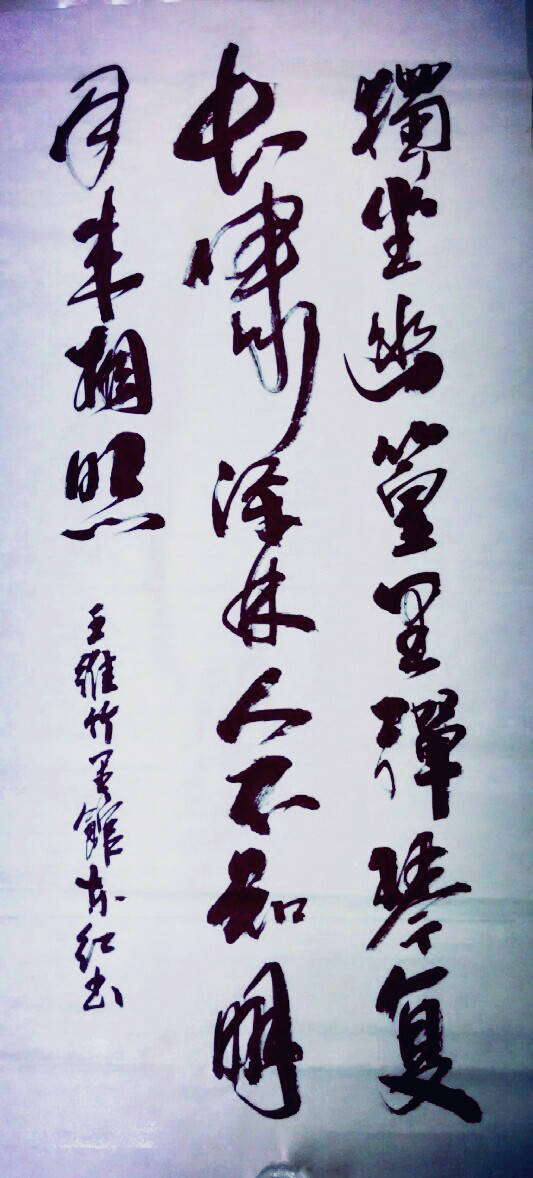 獨坐幽篁里彈琴复
长嘯深林人不知明
月来相照
王維竹里館东红书